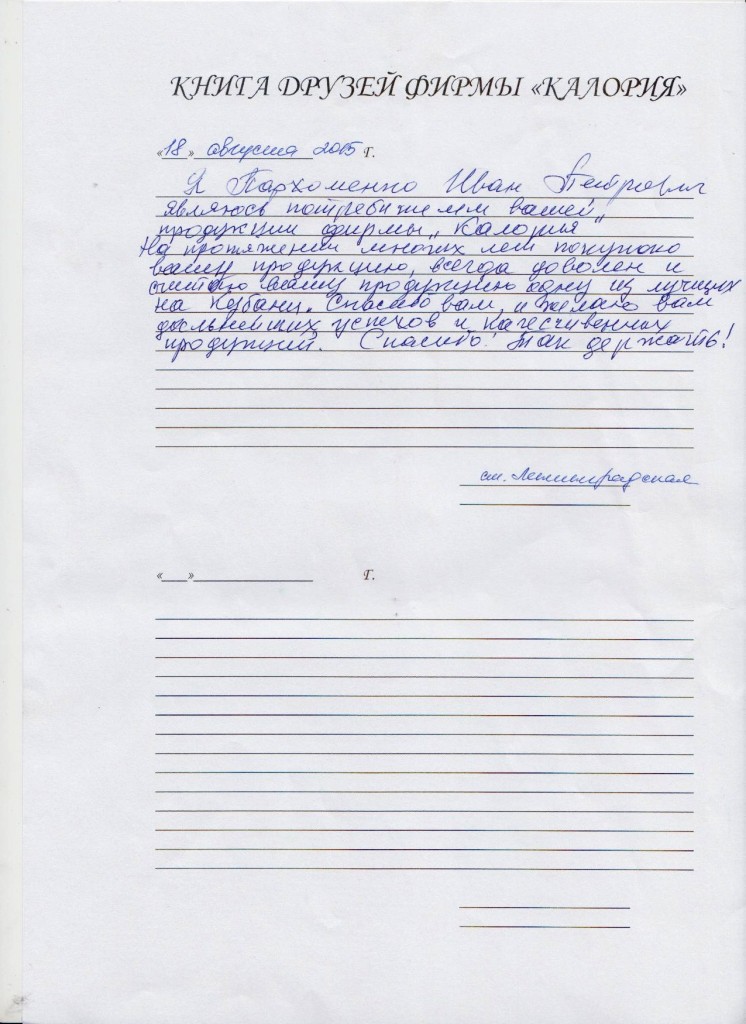 КНИГА ДРУЗЕЙ ФИРМЫ «КАЛОРИЯ»
«18» августа 2015 г.
Я Пархоменко Иван Петрович
являюсь потребителем вашей
продукции фирмы „Калория"
На протяжении многих лет покупаю
вашу продукцию, всегда доволен и
считаю вашу продукцию одну из лучших
на Кубани. Спасибо вам, и желаю вам
дальнейших успехов и качественных
продукций. Спасибо! Так держать!
ст. Ленинградская
«__»______________ г.